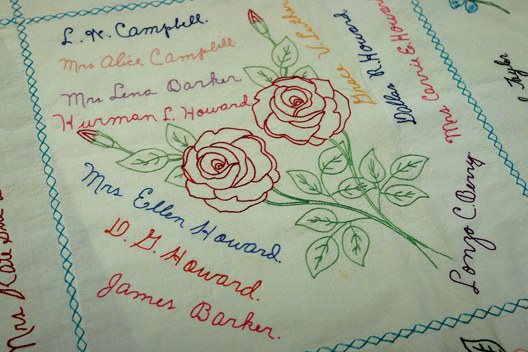 L. N. Campbell.
Mrs Alice Campbell
Mrs Lena Barker
Hurman L. Howard
Mrs Ellen Howard.
D. G. Howard.
James Barker.
Howard
Mrs. Carrie E. Howard
Lonzo C. Berry
Taylor
Mrs Kate